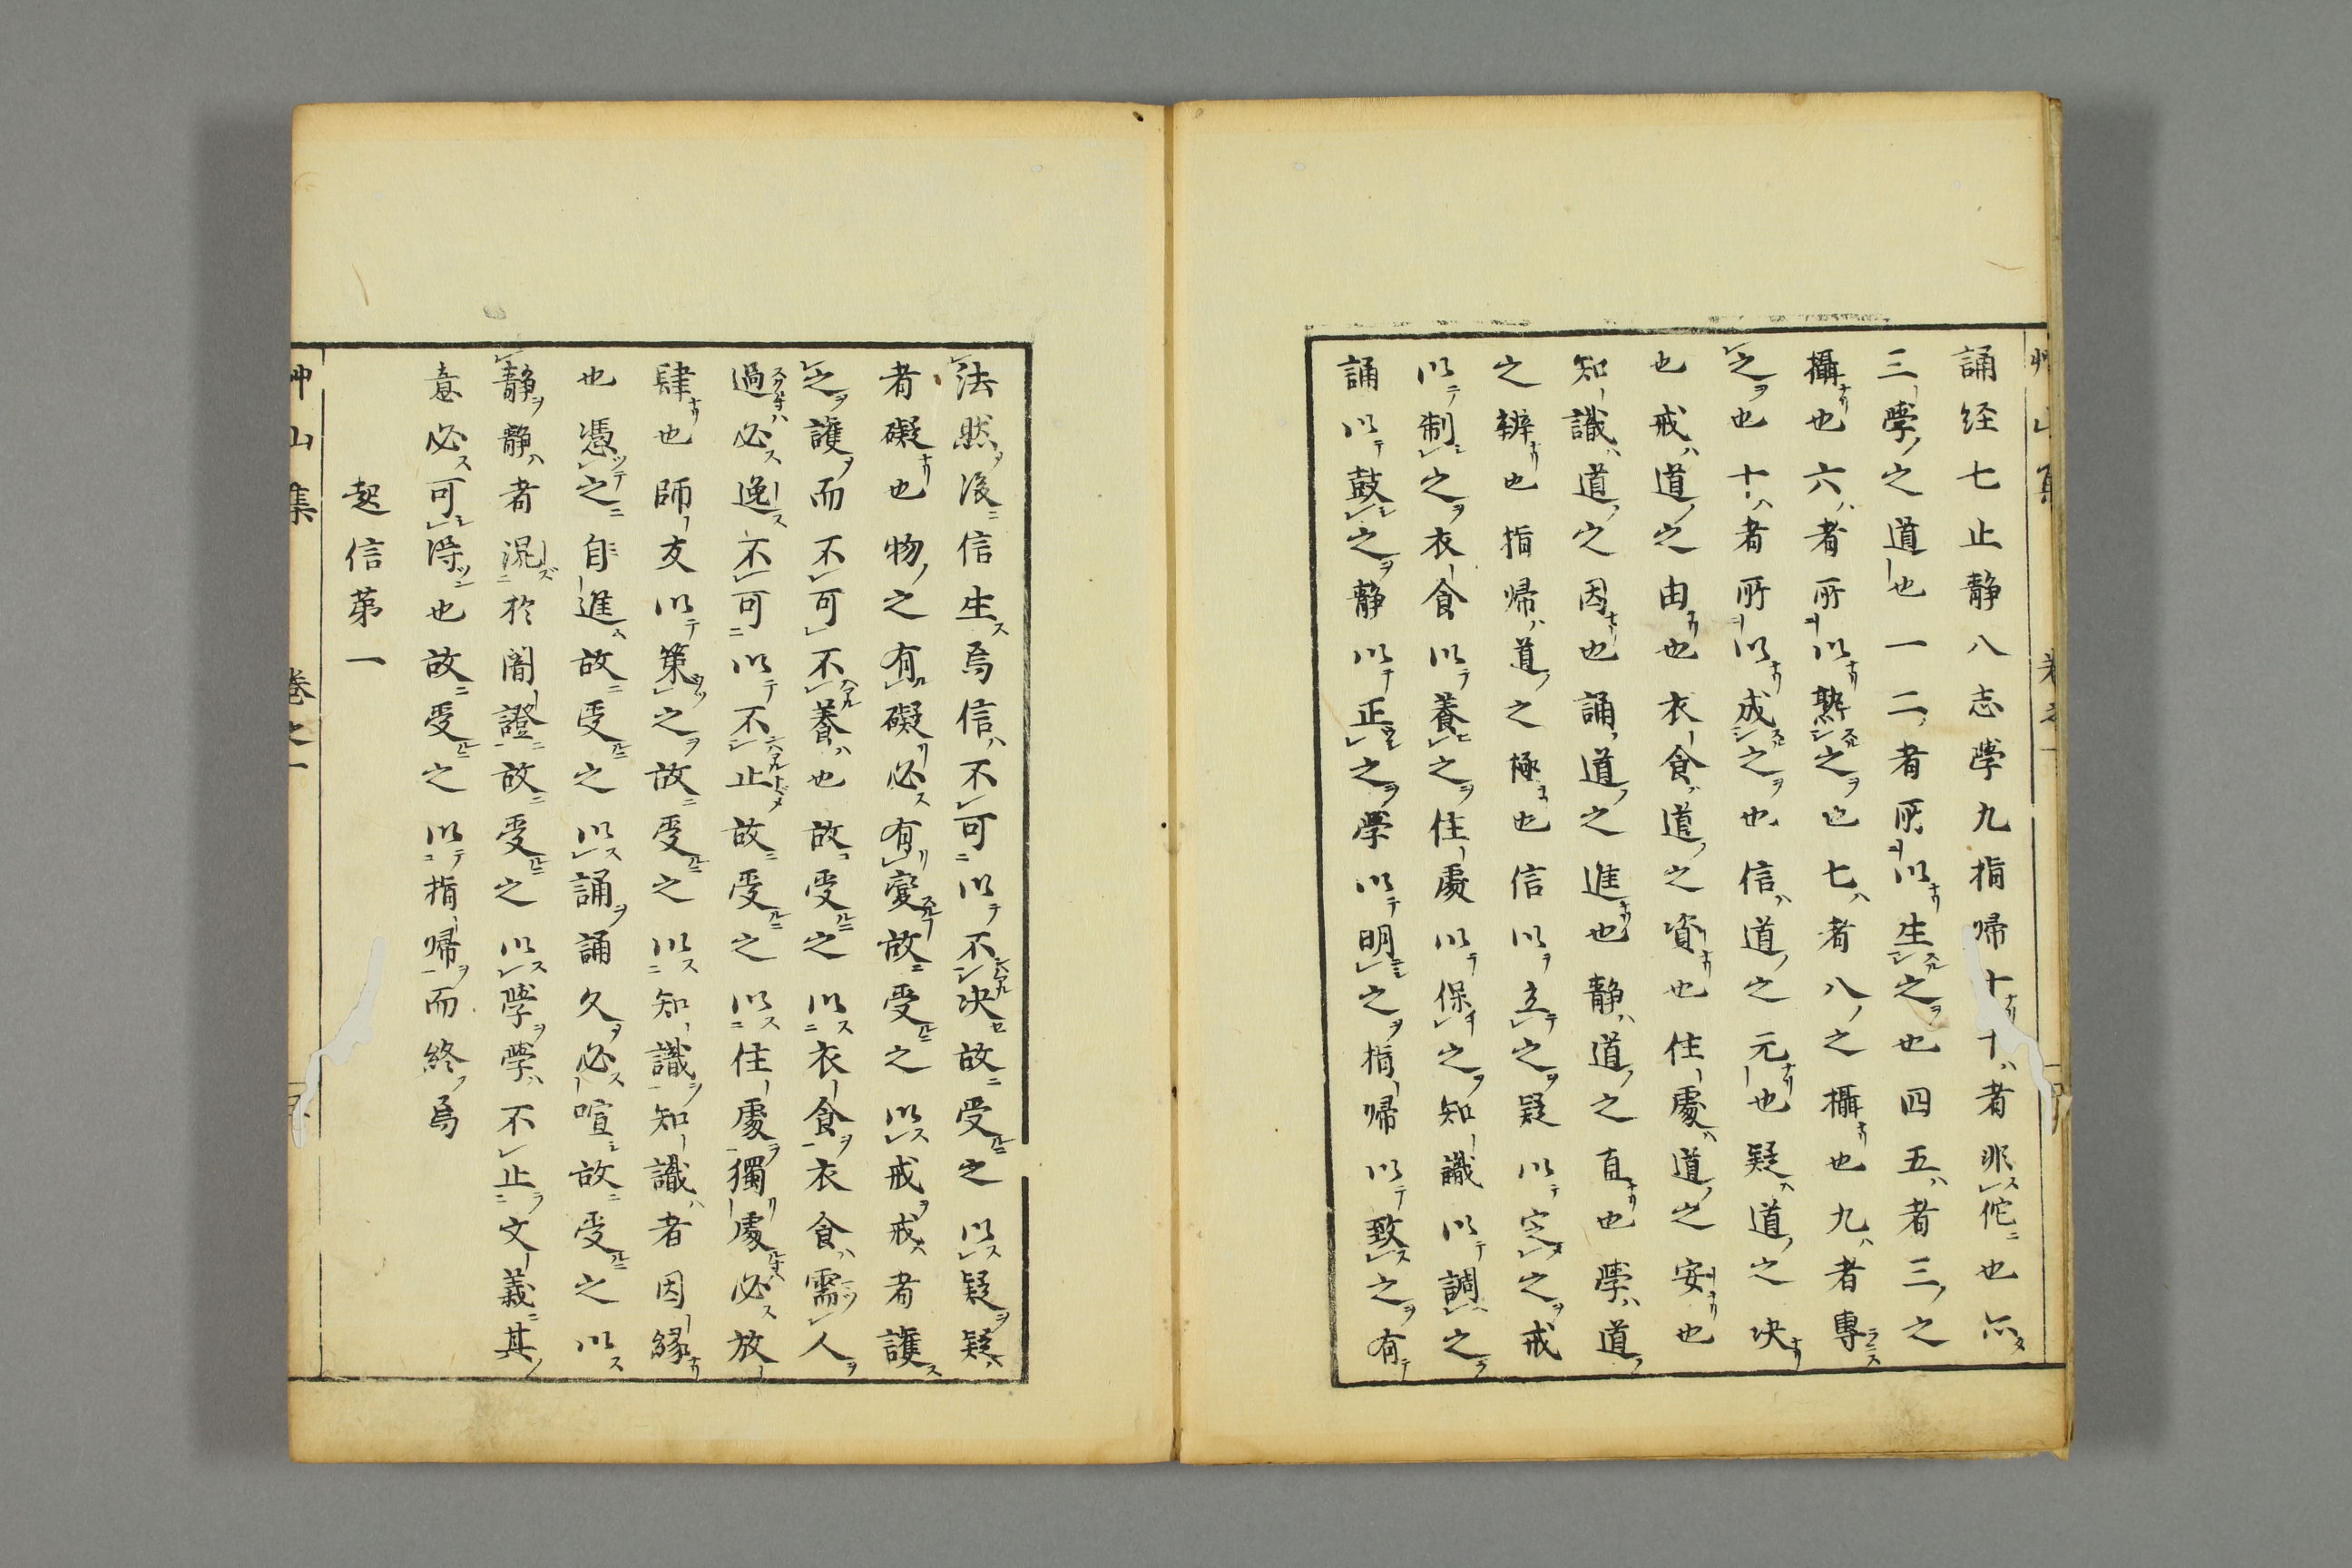 艸山集　巻之一
誦経七止静八志學九指帰十十者非佗也尒
三學之道也一二者所以生之也四五者三之
攝也六者所以熟之也七者八之攝也九者專
之也十者所以成之也信道之元也疑道之决
也戒道之由也衣食道之資也住處道之安也
知識道之因也誦道之進也静道之直也學道
之辨也指帰道之極也信以立之疑以定之戒
以制之衣食以養之住處以保之知識以調之
誦以鼓之静以正之學以明之指帰以致之有
法然後信生焉信不可以不决故受之以疑疑
者礙也物之有礙必有變故受之以戒戒者護
之護而不可不養也故受之以衣食衣食需人
過必逸不可以不止故受之以住處獨處必放
肆也師友以策之故受之以知識知識者因縁
也憑之自進故受之以誦誦久必喧故受之以
静静者混於闇證故受之以學學不止文義其
意必可得也故受之以指帰而終焉
起信第一
艸山集　巻之一